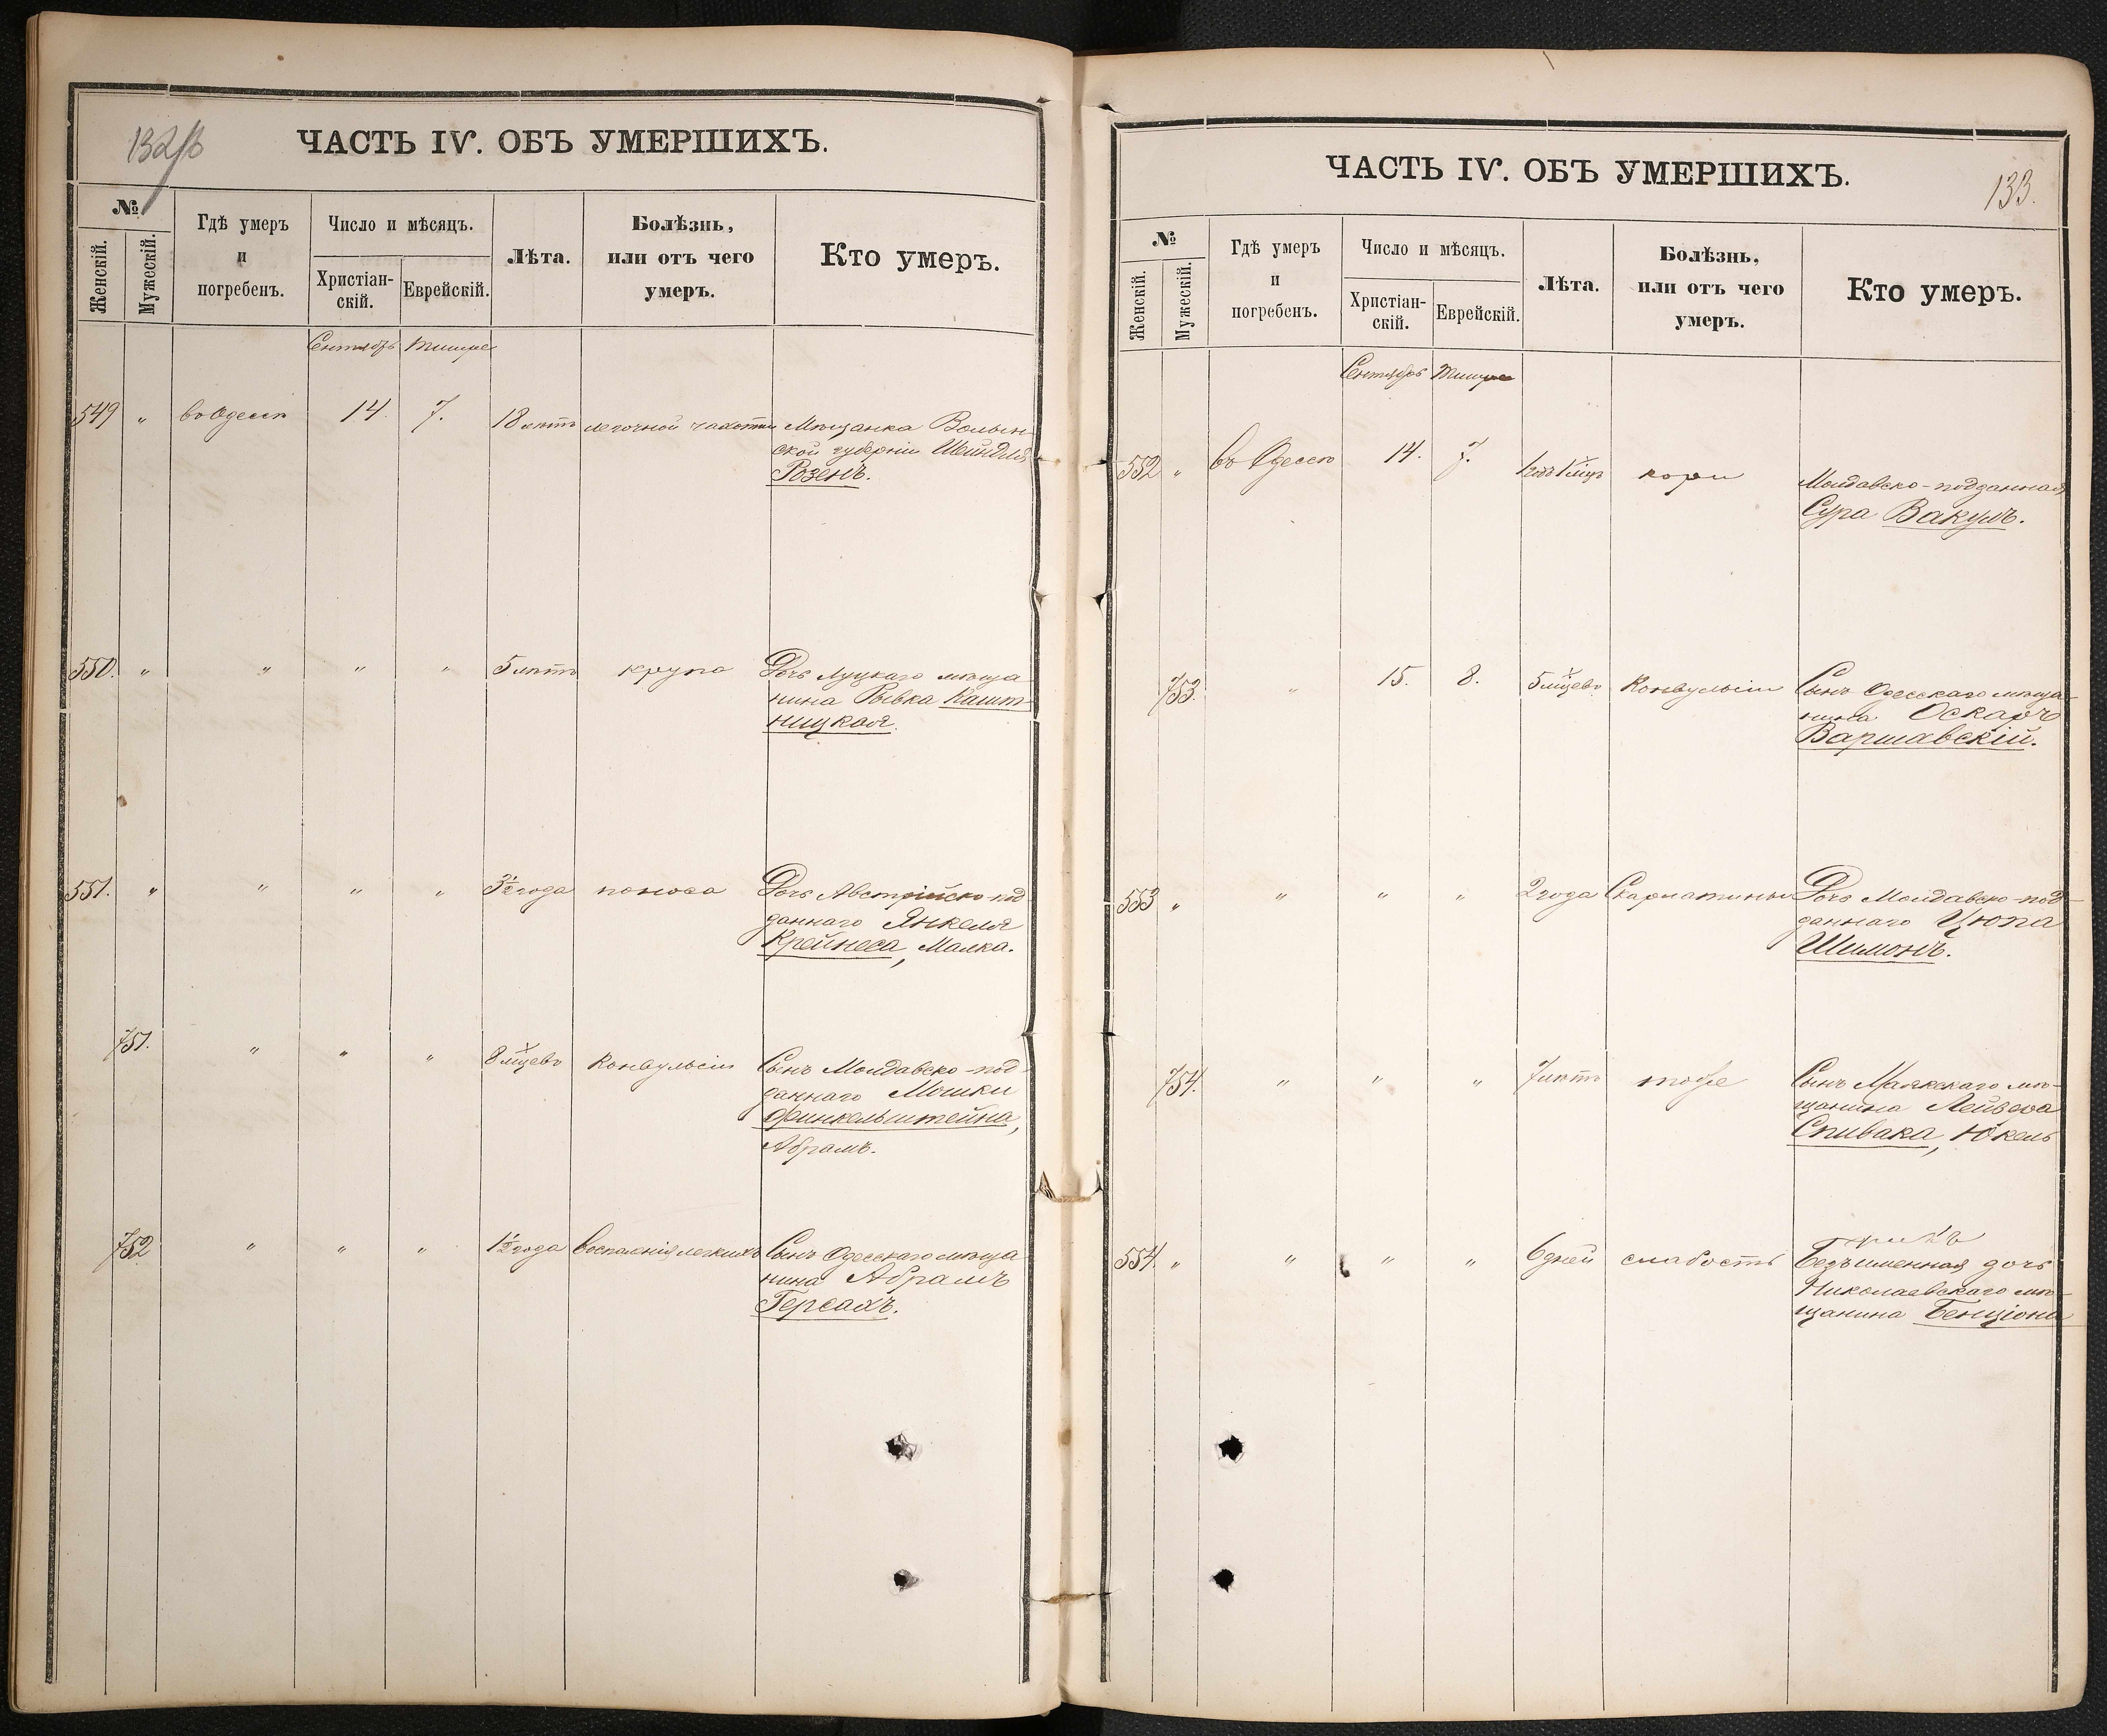 132об
ЧАСТЬ IV. ОБЪ УМЕРШИХЪ.
№
Женскій.
Мужескій.
Гдѣ умеръ
и
погребенъ.
Число и мѣсяцъ.
Христіан-
скій.
Еврейскій.
Лѣта.
Болѣзнь,
или отъ чего
умеръ.
Кто умеръ.
Сентябрь Тишре
549 " въ Одессѣ 14. 7. 18 лѣтъ легочной чахотки Мѣщанка Волын-
ской губерніи Шейндля
Розенъ.
550. " " " " 5 лѣтъ крупа Дочь Луцкаго мѣща
нина Ривка Кашт-
ницкая.
551. " " " " 3 1/2 года поноса Дочь Австрійско-под
даннаго Янкеля
Крейнеса, Малка.
751. " " " 8 мѣцевъ Конвульсіи Сынъ Молдавско-под
даннаго Мошки
Финкельштейна,
Абрамъ.
752 " " " 1 1/2 года Воспаленія легкихъ Сынъ Одесскаго мѣща
нина Абрамъ
Герсахъ.
133.
ЧАСТЬ IV. ОБЪ УМЕРШИХЪ.
№
Женскій.
Мужескій.
Гдѣ умеръ
и
погребенъ.
Число и мѣсяцъ.
Христіан-
скій.
Еврейскій.
Лѣта.
Болѣзнь,
или отъ чего
умеръ.
Кто умеръ.
Сентябрь Тишре
552 " въ Одессѣ 14. 7. 1 годъ 1 мѣц кори Молдавско-подданная
Сура Вакулъ.
753. " 15. 8. 5 мѣцевъ Конвульсіи Сынъ Одесскаго мѣща-
нина Оскаръ
Варшавскій.
553 " " " " 2 года Скарлатины Дочь Молдавско-под-
даннаго Цюпа
Шимонъ.
754. " " " 7 лѣтъ тоже Сынъ Маякскаго мѣ-
щанина Лейзера
Спивака, Юкель
554. " " " " 6 дней слабость Безъименная дочь
Николаевскаго мѣ-
щанина Бенціона